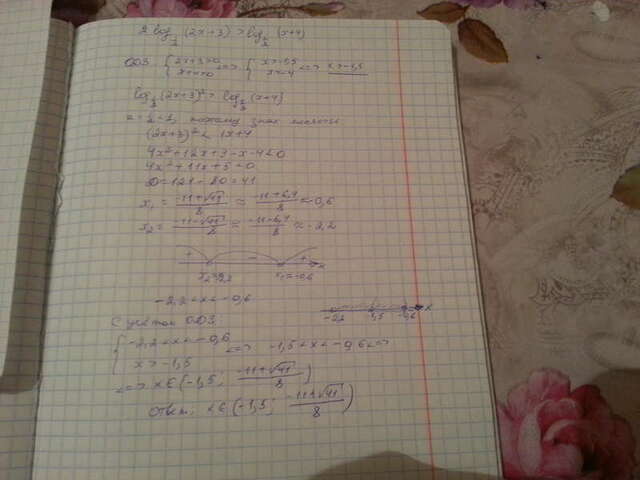 2 log_1/2 (2x+3) > log_1/2 (x+4)
ОДЗ: { 2x+3>0 x+4>0 <=> { x>-1,5 x>-4 <=> x>-1,5
log_1/2 (2x+3)² > log_1/2 (x+4)
поэтому знак
(2x+3)² < x+4
4x²+12x+9-x-4<0
4x²+11x+5<0
D=121-80=41
x₁ = (-11+√41)/8 ≈ (-11+6,4)/8 ≈ -0,6
x₂ = (-11-√41)/8 ≈ (-11-6,4)/8 ≈ -2,2
+ - + x
x₂≈-2,2 x₁≈-0,6
-2,2<x<-0,6
-2,2 -1,5 -0,6 x
С учётом ОДЗ:
{ -2,2<x<-0,6 x>-1,5 <=> -1,5<x<-0,6 <=>
<=> x∈(-1,5; (-11+√41)/8)
Ответ: x∈(-1,5; (-11+√41)/8)